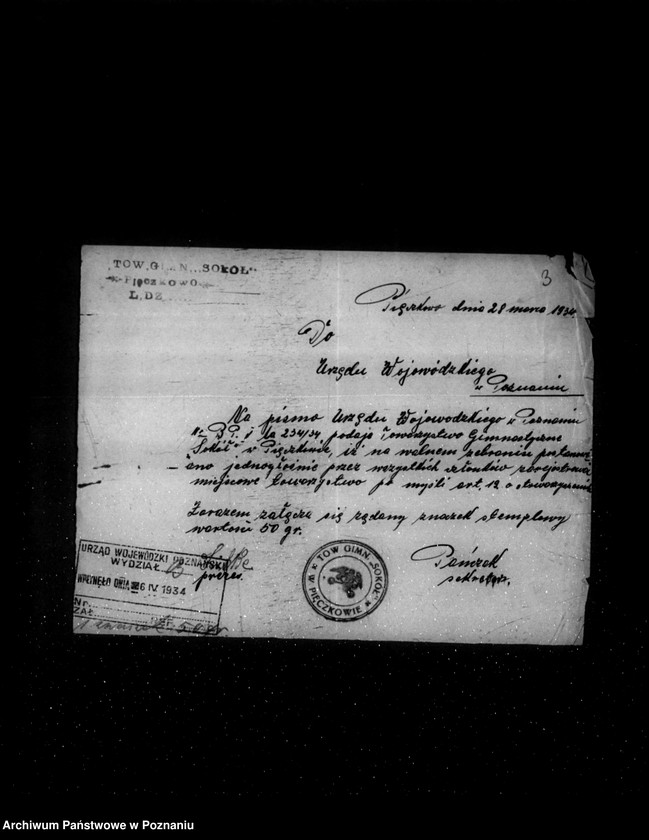 TOW. GIMN. „SOKÓŁ"
Pięczkowo
L. DZ.
3
Pięczkowo dnia 28 marca 1934.
Do
Urzędu Wojewódzkiego
w Poznaniu
Na pismo Urzędu Wojewódzkiego w Poznaniu
234/34 podaje Towarzystwo Gimnastyczne
"Sokół" w Pięczkowie, iż na walnem zebraniu postanowi
ono jednogłośnie przez wszystkich członków zarejestrować
miejscowe towarzystwo po myśli art. 12 o stowarzyszeniu
Zarazem załącza się żądany znaczek stemplowy
wartości 50 gr.
prezes.
sekretarz.
TOW GIMN. „SOKÓŁ"
W PIĘCZKOWIE
URZĄD WOJEWÓDZKI POZNAŃSKI
WYDZIAŁ B
WPŁYNĘŁO DNIA 6 IV 1934
Nr.
ZAŁ.
1 znaczek 50 gr
Archiwum Państwowe w Poznaniu